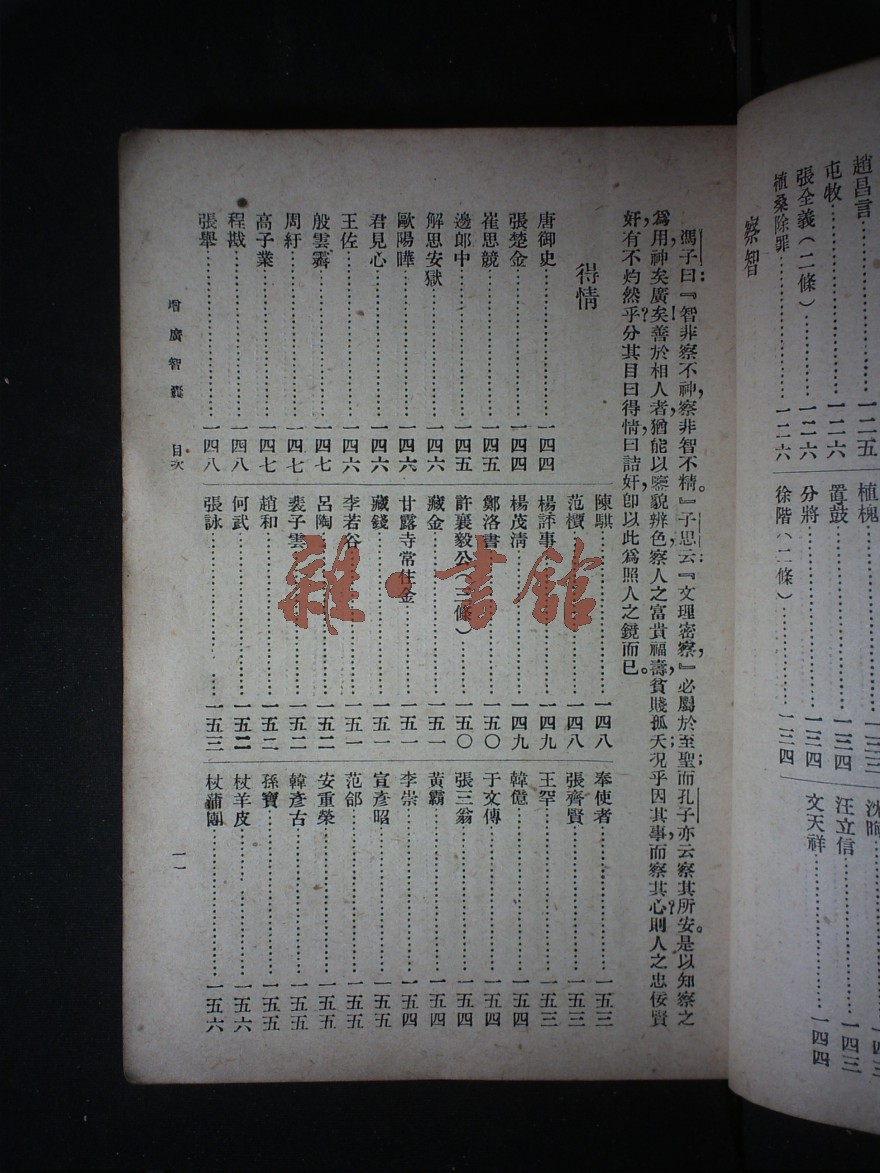 趙昌言……一二五
屯牧……一二六
張全義（二條）……一二六
植桑除罪……一二六
植槐……一三三
置鼓……一三四
分將……一三四
徐階（二條）……一三四
汪立信……一四三
文天祥……一四四
察智
馮子曰：『智非察不神，察非智不精。』子思云：『文理密察，』必屬於至聖；而孔子亦云察其所安。是以知察之
爲用神矣廣矣！善於相人者，猶能以察貌辨色，察人之富貴福壽貧賤孤夭，況乎因其事而察其心，則人之忠佞賢
奸，有不灼然乎？分其目曰得情，曰詰奸，卽以此爲照人之鏡而已。
得情
唐御史……一四四
張楚金……一四四
崔思競……一四五
邊郎中……一四五
解思安獄……一四六
歐陽曄……一四六
君見心……一四六
王佐……一四六
殷雲霽……一四七
周紆……一四七
高子業……一四七
程戡……一四八
張舉……一四八
陳騏……一四八
范檟……一四八
楊評事……一四九
楊茂淸……一四九
鄭洛書……一五〇
許襄毅公（三條）……一五〇
藏金……一五一
甘露寺常住金……一五一
藏錢……一五一
李若谷……一五一
呂陶……一五二
裴子雲……一五二
趙和……一五二
何武……一五二
張詠……一五三
奉使者……一五三
張齊賢……一五三
王罕……一五三
韓億……一五四
于文傳……一五四
張三翁……一五四
黃霸……一五四
李崇……一五四
宣彥昭……一五五
范郃……一五五
安重榮……一五五
韓彥古……一五五
孫寶……一五五
杖羊皮……一五六
杖蒲團……一五六
增廣智囊 目次
一一
雜·書館